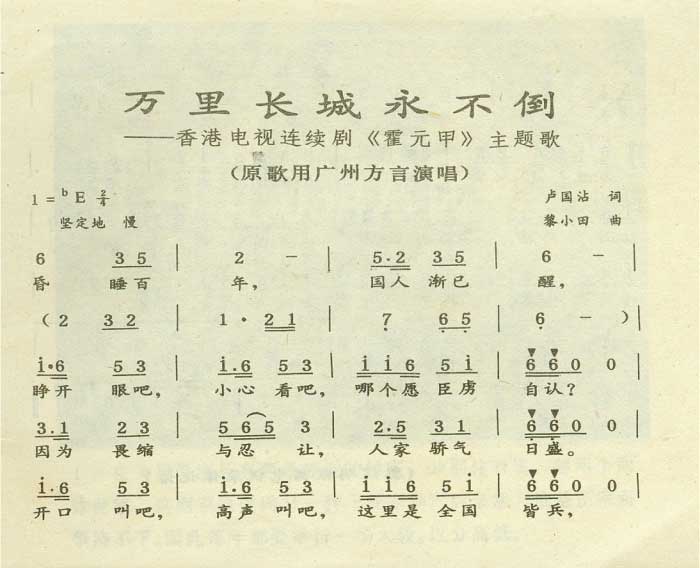 万里长城永不倒
——香港电视连续剧《霍元甲》主题歌
（原歌用广州方言演唱）
1 = ᵇE 2/4
卢国沾 词
坚定地 慢
黎小田 曲
6 3 5 | 2 － | 5·2 3 5 | 6 － |
昏 睡百 年， 国人 渐已 醒，
（2 3 2 | 1· 2 1 | 7 6 5 | 6 － ）|
i·6 5 3 | i·6 5 3 | i i 6 5 i | 6 6 0 0 |
睁开 眼吧， 小心 看吧， 哪个愿 臣虏 自认？
3·1 2 3 | 5 6 5 3 | 2·5 3 1 | 6 6 0 0 |
因为 畏缩 与忍 让， 人家 骄气 日盛。
i·6 5 3 | i·6 5 3 | i i 6 5 i | 6 6 0 0 |
开口 叫吧， 高声 叫吧， 这里是 全国 皆兵，